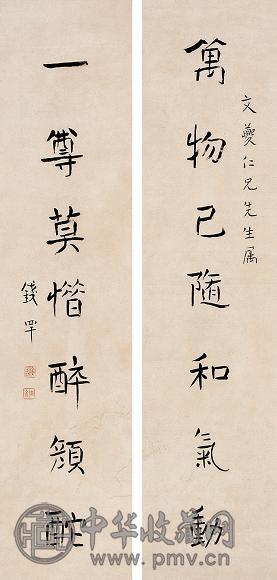 文夔仁兄先生属
萬物已隨和氣動
一尊莫惜醉顔酡
錢罕
中华收藏网
www.pmv.cn